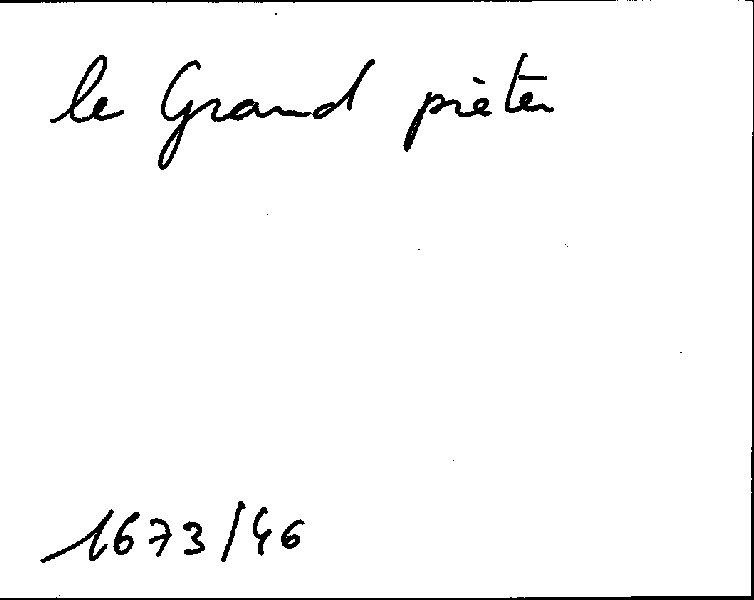 le Grand pièter
1673/46